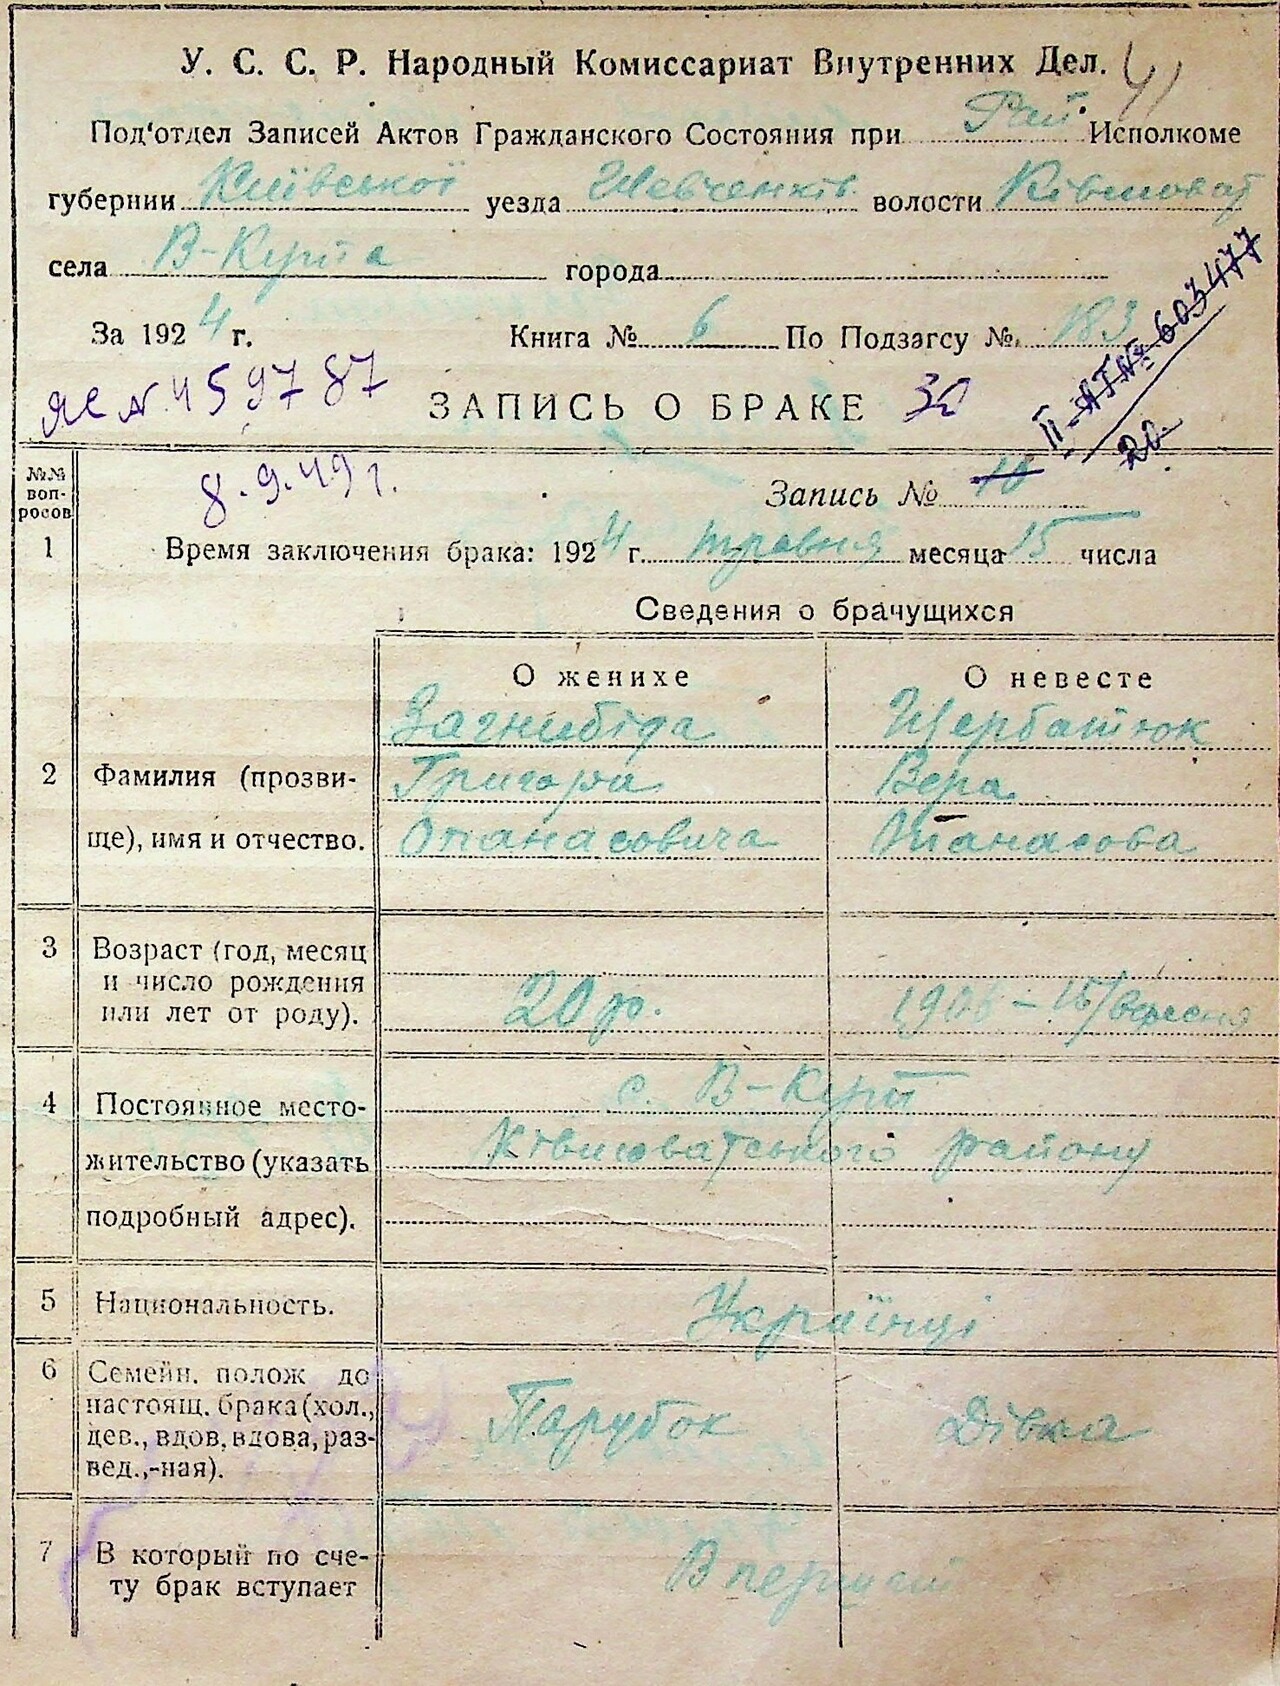 У. С. С. Р. Народный Комиссариат Внутренних Дел. 41
Под'отдел Записей Актов Гражданского Состояния при Рай. Исполкоме
губернии Київської уезда Шевченків. волости Ківшоват
села В-Крута города
За 1924 г. Книга № 6 По Подзагсу № 183
ЯС № 459787 ЗАПИСЬ О БРАКЕ 30 II-АТ № 603477
20.
№.№ воп-росов
8.9.49 г. Запись № 10
1 Время заключения брака: 1924 г. травня месяца 15 числа
Сведения о брачущихся
О женихе О невесте
Загнибіда Щербатюк
2 Фамилия (прозви- Григорія Вера
ще), имя и отчество. Опанасовича Танасова
3 Возраст (год, месяц
и число рождения 20 р. 1906 – 15/вересня
или лет от роду).
с. В-Крут
4 Постоянное место-
Ківшоватського району
жительство (указать
подробный адрес).
5 Национальность. Українці
6 Семейн. полож до
настоящ. брака (хол., Парубок Дівка
дев., вдов, вдова, раз-
вед.,-ная).
7 В который по сче- В перший
ту брак вступает